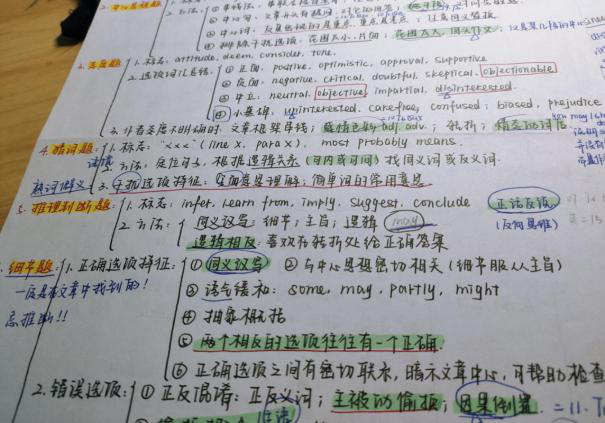 2. 中心主旨题
② 中心句：
③ 中心词：反复出现的是重点，重点是考点；注意同义替换
④ 排除干扰选项：范围太小、片面；范围太大，
3. 态度题
1. 标志：attitude, deem, consider, tone.
2. 选项词汇总结：① 正面：positive, optimistic, approval, supportive
② 负面：negative, critical, doubtful, skeptical, objectionable
③ 中立：neutral, objective, impartial, disinterested
④ 小基础：uninterested, carefree, confused; biased, prejudice
3. 作者态度不明确时，文章框架串线；感情色彩 adj. adv.；转折；情态动词后
4. 猜词题
1. 标志："×××" (line x, para x), most probably means.
2. 方法：定位句子，根据逻辑关系（句内或句间）找同义词或反义词.
熟词僻义
3. 干扰选项特征：字面意思理解；简单词的常用意思
5. 推理判断题
1. 标志：infer, learn from, imply, suggest, conclude
正话反说
(反向思维)
2. 方法：同义改写：细节；主旨；逻辑 may
逻辑相反：喜欢在转折处给正确答案
细节题
1. 正确选项特征：① 同义改写 ② 与中心思想密切相关（细节服从主旨）
一定是在文章中找到的！
忌推断！！
③ 语气缓和：some, may, partly, might
④ 抽象概括
⑤ 两个相反的选项往往有一个正确.
⑥ 正确选项之间有密切联系，暗示文章中心，可帮助检查
2. 错误选项：① 正反混淆：正反义词；主被动偷换；因果倒置.